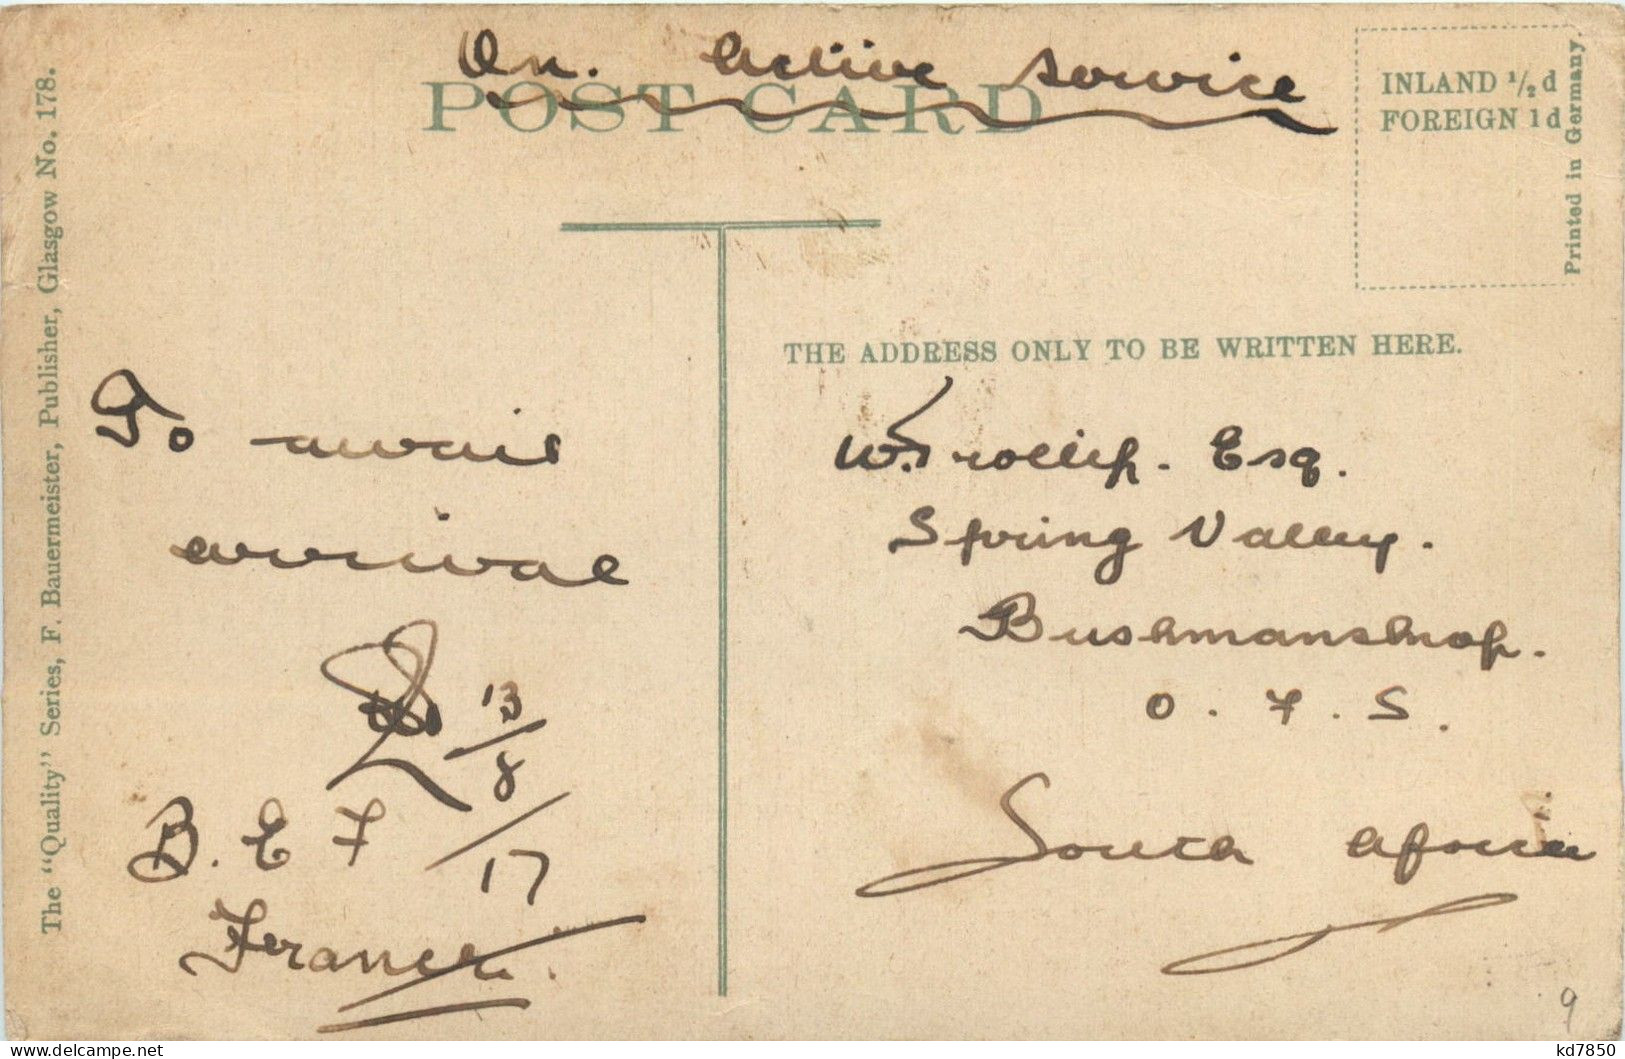 On. Active Service
POST CARD
INLAND ½ d
FOREIGN 1 d
Printed in Germany.
The "Quality" Series, F. Bauermeister, Publisher, Glasgow No. 178.
THE ADDRESS ONLY TO BE WRITTEN HERE.
To await
arrival
13/8/17
B. E F
France.
W. Trollip. Esq.
Spring Valley.
Bushmanskop.
O. F. S.
South Africa
9
kd7850